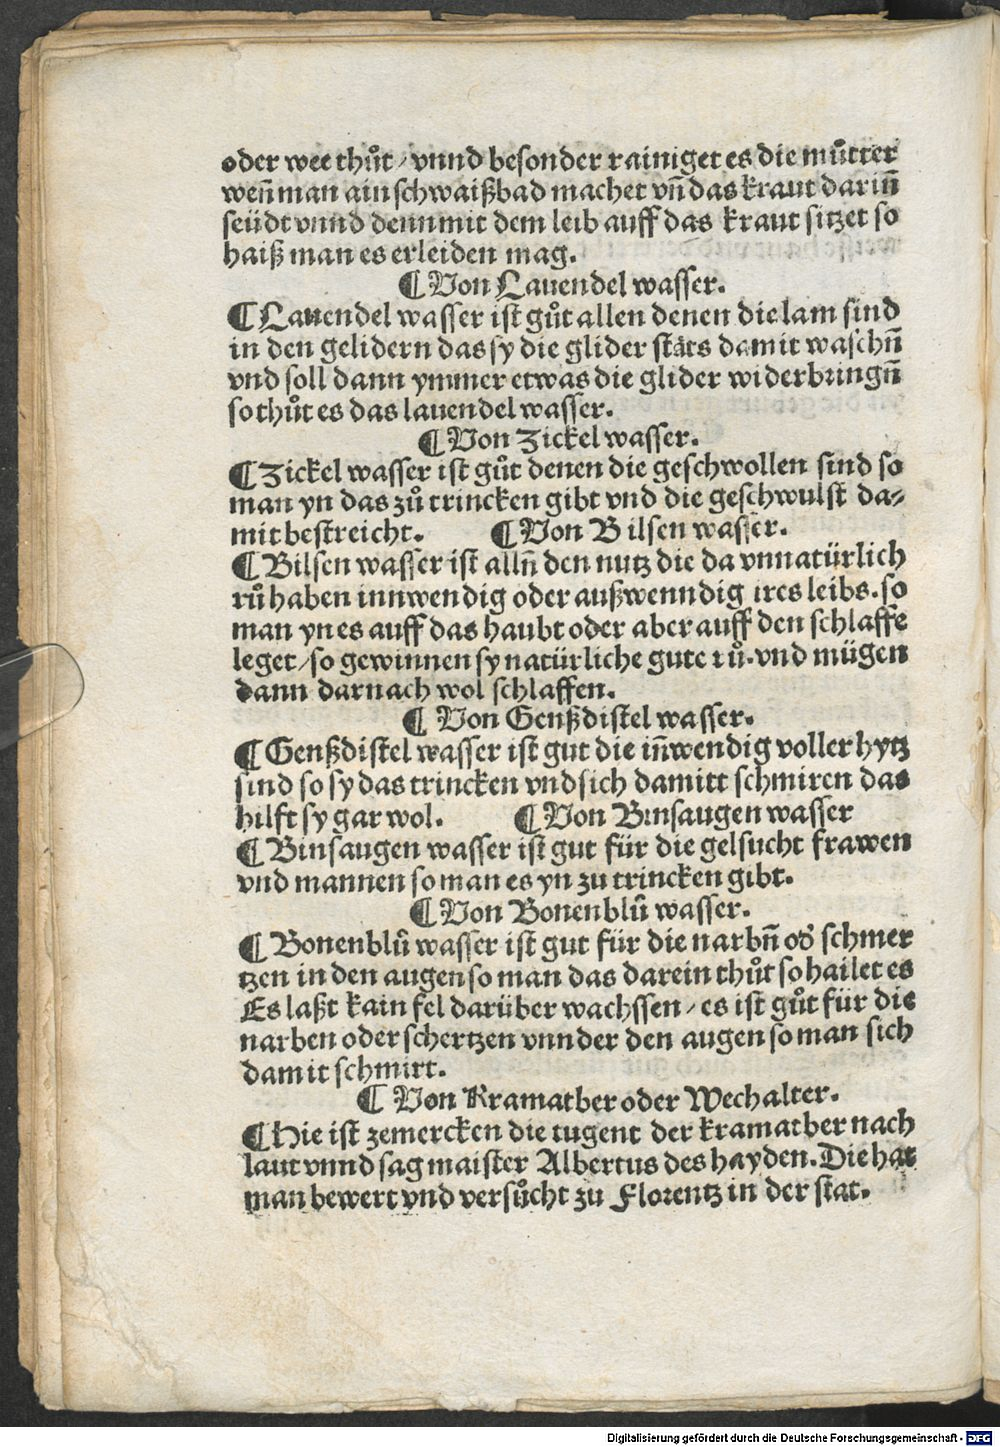 oder wee thůt / vnnd besonder rainiget es die můtter
weñ man ain schwaißbad machet vñ das kraut dariñ
seüdt vnnd denn mit dem leib auff das kraut sitzet so
haiß man es erleiden mag.
¶ Von Lauendel wasser.
¶ Lauendel wasser ist gůt allen denen die lam sind
in den gelidern das sy die glider stäts damit waschñ
vnd soll dann ymmer etwas die glider widerbringñ
so thůt es das lauendel wasser.
¶ Von Zickel wasser.
¶ Zickel wasser ist gůt denen die geschwollen sind so
man yn das zů trincken gibt vnd die geschwulst da⸗
mit bestreicht. ¶ Von Bilsen wasser.
¶ Bilsen wasser ist allñ den nutz die da vnnatürlich
rů haben innwendig oder außwenndig ires leibs. so
man yn es auff das haubt oder aber auff den schlaffe
leget / so gewinnen sy natürliche gute rů. vnd mügen
dann darnach wol schlaffen.
¶ Von Genßdistel wasser.
¶ Genßdistel wasser ist gut die iñwendig voller hytz
sind so sy das trincken vnd sich damitt schmiren das
hilft sy gar wol. ¶ Von Binsaugen wasser
¶ Binsaugen wasser ist gut für die gelsucht frawen
vnd mannen so man es yn zu trincken gibt.
¶ Von Bonenblů wasser.
¶ Bonenblů wasser ist gut für die narbñ od' schmer
tzen in den augen so man das darein thůt so hailet es
Es laßt kain fel darüber wachssen / es ist gůt für die
narben oder schertzen vnnder den augen so man sich
damit schmirt.
¶ Von Kramatber oder Wechalter.
¶ Hie ist zemercken die tugent der kramatber nach
laut vnnd sag maister Albertus des hayden. Die hat
man bewert vnd versůcht zu Florentz in der stat.
Digitalisierung gefördert durch die Deutsche Forschungsgemeinschaft - DFG